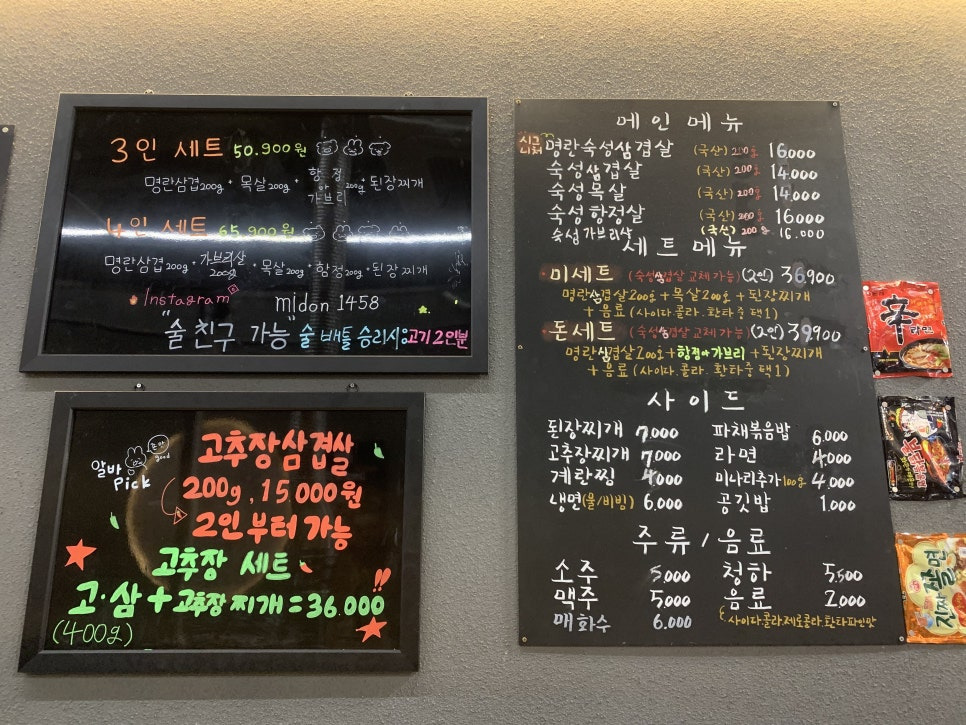 3인 세트 50.900원
명란삼겹200g + 목살200g + 항정 or 가브리 200g + 된장찌개
4인 세트 65.900원
명란삼겹200g + 가브리살200g + 목살200g + 항정200g + 된장찌개
Instagram midon 1458
"술친구 가능" 술 배틀 승리시 고기2인분
알바 Pick
good
고추장삼겹살
200g, 15,000원
2인부터 가능
고추장 세트
고·삼 + 고추장찌개 = 36.000
(400g)
메인메뉴
시그니처 명란숙성삼겹살 (국산) 200g 16.000
숙성삼겹살 (국산) 200g 14.000
숙성목살 (국산) 200g 14.000
숙성항정살 (국산) 200g 16000
숙성가브리살 (국산) 200g 16.000
세트메뉴
미세트 (숙성삼겹살 교체 가능) (2인) 36,900
명란삼겹살200g + 목살200g + 된장찌개
+ 음료 (사이다.콜라.환타중 택1)
돈세트 (숙성삼겹살 교체 가능) (2인) 39,900
명란삼겹살200g + 항정or가브리 + 된장찌개
+ 음료 (사이다.콜라.환타중 택1)
사이드
된장찌개 7,000 파채볶음밥 6.000
고추장찌개 7,000 라면 4,000
계란찜 4,000 미나리추가100g 4.000
냉면(물/비빔) 6.000 공깃밥 1.000
주류/음료
소주 5,000 청하 5,500
맥주 5000 음료 2,000
매화수 6.000 사이다.콜라.제로콜라.환타파인맛
辛
라면
불닭볶음면
진짜쫄면